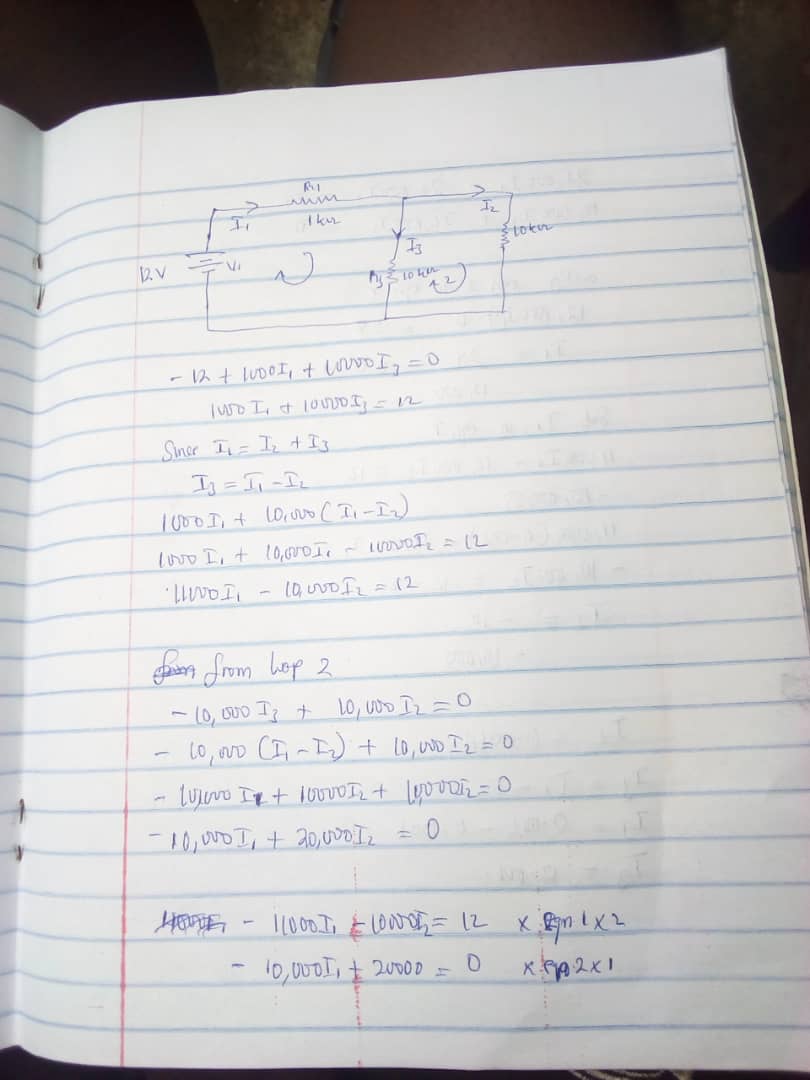 R1
I1 1kΩ I2
I3 10kΩ
12V V1 R3 10kΩ 2
- 12 + 1000I1 + 10000I3 = 0
1000 I1 + 10000I3 = 12
Since I1 = I2 + I3
I3 = I1 - I2
1000I1 + 10,000 ( I1 - I2)
1000 I1 + 10,000I1 - 10000I2 = 12
11000I1 - 10,000I2 = 12
from loop 2
- 10,000 I3 + 10,000 I2 = 0
- 10,000 (I1 - I2) + 10,000 I2 = 0
- 10,000 I1 + 10000I2 + 10,000I2 = 0
- 10,000I1 + 20,000I2 = 0
- 11000I1 - 10000I2 = 12 x Eqn 1 x 2
- 10,000I1 + 20000 = 0 x eqn 2 x 1